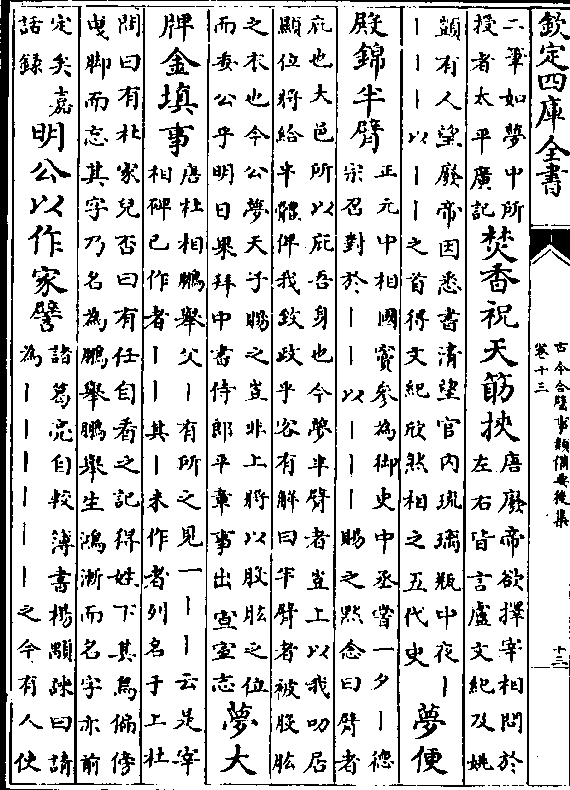 欽定四庫全書
古今合璧事類備要後集
卷十三
十三
二筆如夢中所
授者太平廣記
焚香祝天筯挾
唐廢帝欲擇宰相問於
左右皆言盧文紀及姚
顗有人望廢帝因悉書清望官內琉璃瓶中夜丨
丨丨丨以丨丨之首得文紀欣然相之五代史
夢便
殿錦半臂
正元中相國竇參為御史中丞嘗一夕丨德
宗召對於丨丨以丨丨丨賜之黙念曰臂者
庇也大邑所以庇吾身也今夢半臂者豈上以我叨居
顯位將給半體俾我致政乎客有解曰半臂者被股肱
之衣也今公夢天子賜之豈非上將以股肱之位
而委公乎明日果拜中書侍郎平章事出宣室志
夢大
牌金填事
唐杜相鵬舉父丨有所之見一丨丨云是宰
相碑已作者丨丨其丨未作者列名于上杜
問曰有杜家兒否曰有任自看之記得姓下其鳥偏傍
曳脚而忘其字乃名為鵬舉鵬舉生鴻漸而名字亦前
定矣嘉
話録
明公以作家譬
諸葛亮自較簿書楊顒諫曰請
為丨丨丨丨丨丨之今有人使